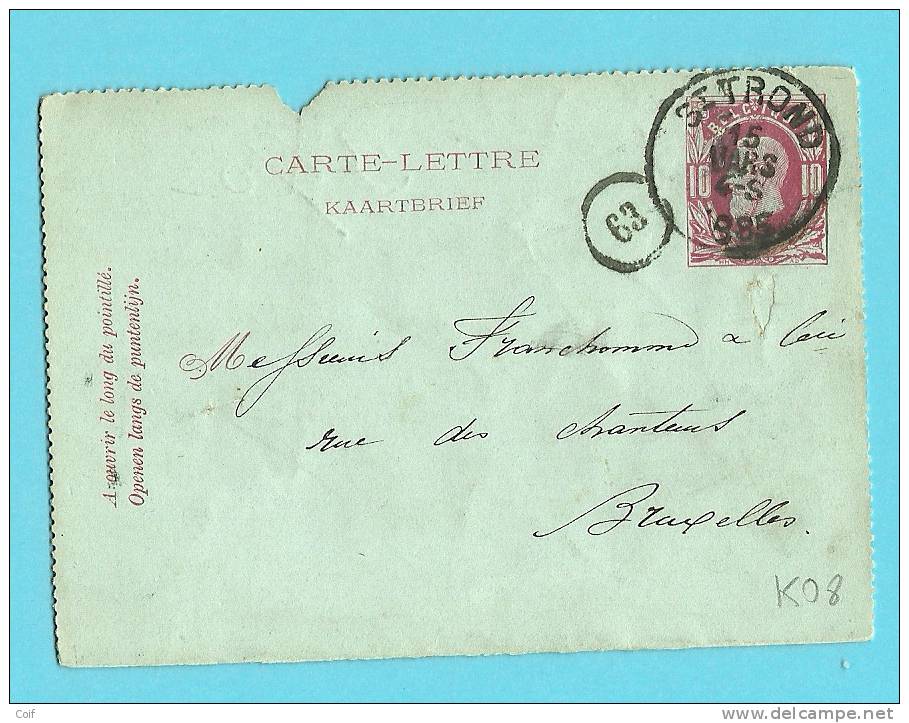 CARTE-LETTRE
KAARTBRIEF
ST TROND
15
MARS
4-S
1885
BELGIQUE
10 10
63
A ouvrir le long du pointillé.
Openen langs de puntenlijn.
Messieurs Franchomme & Cie
rue des Chanteurs
Bruxelles.
K08
Coif
www.delcampe.net